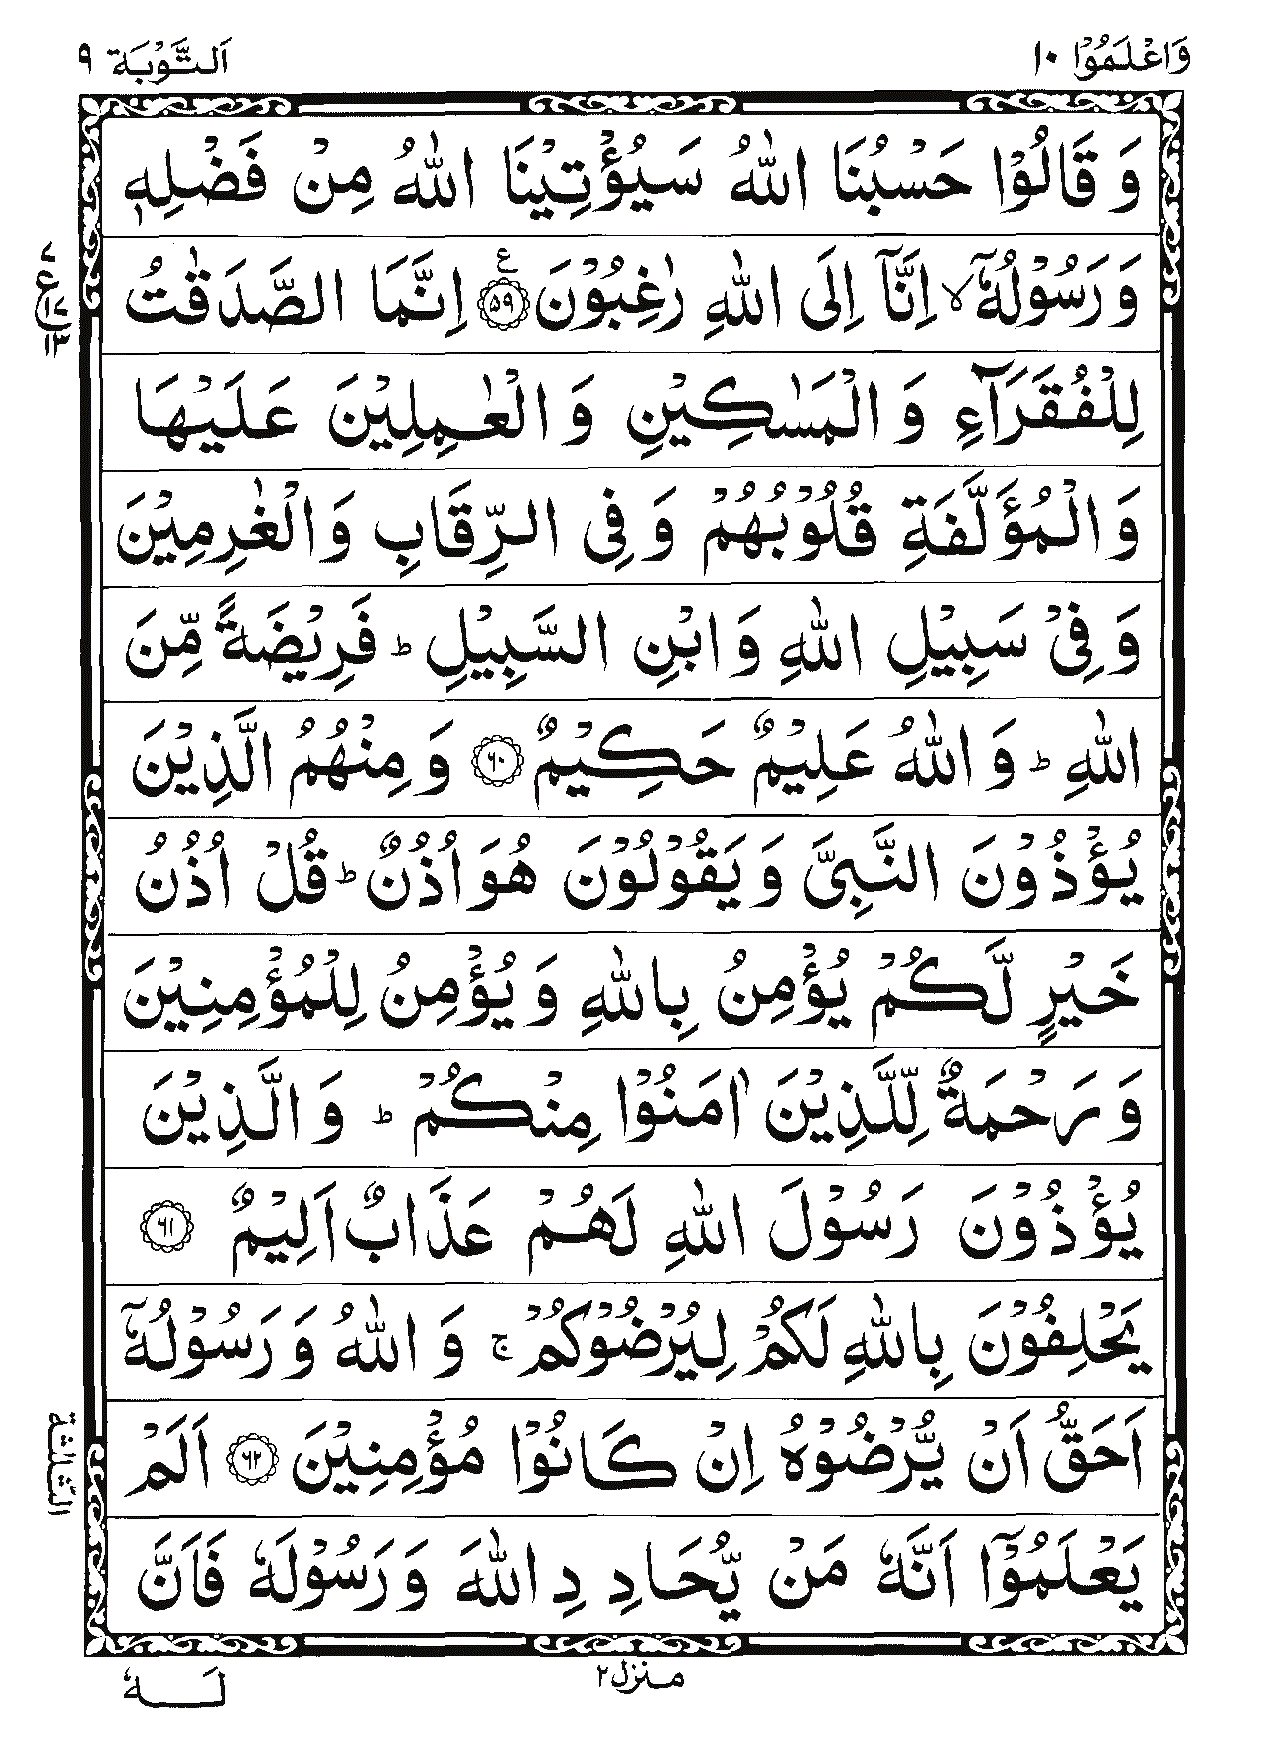 وَاعْلَمُوْۤا ١٠
اَلتَّوْبَة ٩
وَ قَالُوْا حَسْبُنَا اللّٰهُ سَیُؤْتِیْنَا اللّٰهُ مِنْ فَضْلِهٖ
وَ رَسُوْلُهٗۤ ۙ اِنَّاۤ اِلَی اللّٰهِ رٰغِبُوْنَ ࣖ ﴿۵۹﴾ اِنَّمَا الصَّدَقٰتُ
لِلْفُقَرَآءِ وَ الْمَسٰكِیْنِ وَ الْعٰمِلِیْنَ عَلَیْهَا
وَ الْمُؤَلَّفَةِ قُلُوْبُهُمْ وَ فِی الرِّقَابِ وَ الْغٰرِمِیْنَ
وَ فِیْ سَبِیْلِ اللّٰهِ وَ ابْنِ السَّبِیْلِ ؕ فَرِیْضَةً مِّنَ
اللّٰهِ ؕ وَ اللّٰهُ عَلِیْمٌ حَكِیْمٌ ﴿۶۰﴾ وَ مِنْهُمُ الَّذِیْنَ
یُؤْذُوْنَ النَّبِیَّ وَ یَقُوْلُوْنَ هُوَ اُذُنٌ ؕ قُلْ اُذُنُ
خَیْرٍ لَّكُمْ یُؤْمِنُ بِاللّٰهِ وَ یُؤْمِنُ لِلْمُؤْمِنِیْنَ
وَ رَحْمَةٌ لِّلَّذِیْنَ اٰمَنُوْا مِنْكُمْ ؕ وَ الَّذِیْنَ
یُؤْذُوْنَ رَسُوْلَ اللّٰهِ لَهُمْ عَذَابٌ اَلِیْمٌ ﴿۶۱﴾
یَحْلِفُوْنَ بِاللّٰهِ لَكُمْ لِیُرْضُوْكُمْ ۚ وَ اللّٰهُ وَ رَسُوْلُهٗۤ
اَحَقُّ اَنْ یُّرْضُوْهُ اِنْ كَانُوْا مُؤْمِنِیْنَ ﴿۶۲﴾ اَلَمْ
یَعْلَمُوْۤا اَنَّهٗ مَنْ یُّحَادِدِ اللّٰهَ وَ رَسُوْلَهٗ فَاَنَّ
ع
٧
١٧
١٣
الثّالثة
منزل ٢
لَهٗ